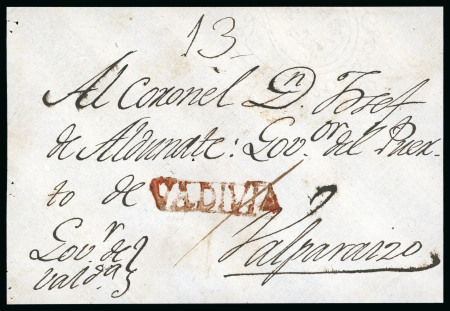 13
Al Coronèl Dn. Josef
de Aldunate: Govor. del Puer-
to de VALDIVIA
Valparaizo
Govr. de
Valda.